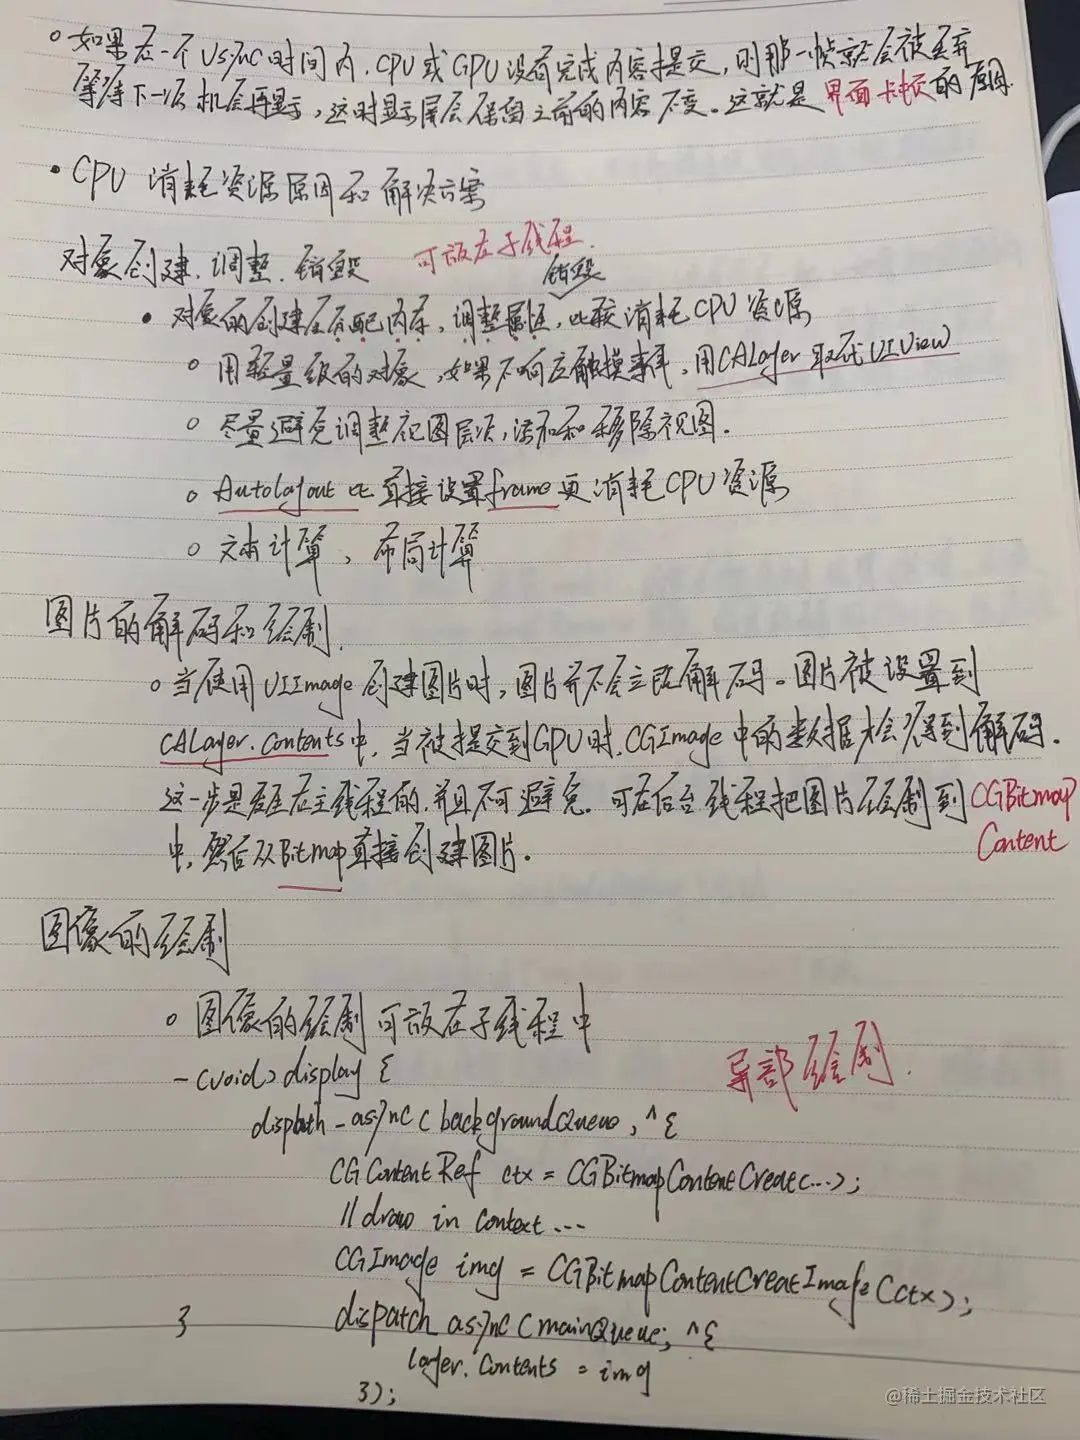 如果在一个VsyNC时间内,CPU或GPU没有完成内容提交,则那一帧就会被丢弃
等待下一次机会再显示,这时显屏会保留之前的内容不变。这就是界面卡顿的原因.
CPU 消耗资源原因和解决方案
对象创建、调整、销毁 可放在子线程.
销毁
对象的创建会分配内存,调整属性,比较消耗CPU资源
用轻量级的对象,如果不响应触摸事件,用CALayer取代UIView
尽量避免调整视图层次,添加和移除视图.
Autolayout比直接设置frame更消耗CPU资源
文本计算,布局计算
图片的解码和绘制.
当使用UIImage创建图片时,图片并不会立即解码。图片被设置到
CALayer.Contents中,当被提交到GPU时,CGImage中的数据才会得到解码.
这一步是发生在主线程的,并且不可避免.可在后台线程把图片绘制到CGBitmap
Content
中,然后从Bitmap直接创建图片.
图像的绘制
图像的绘制可放在子线程中
-(void)display {
异部绘制.
dispath-async(backgroundQueue,^{
CGContentRef ctx = CGBitmapContentCreat(...);
//draw in Context...
CGImage img = CGBitmapContentCreatImage(ctx);
dispatch async(mainQueue;^{
layer.Contents = img
}
});
@稀土掘金技术社区